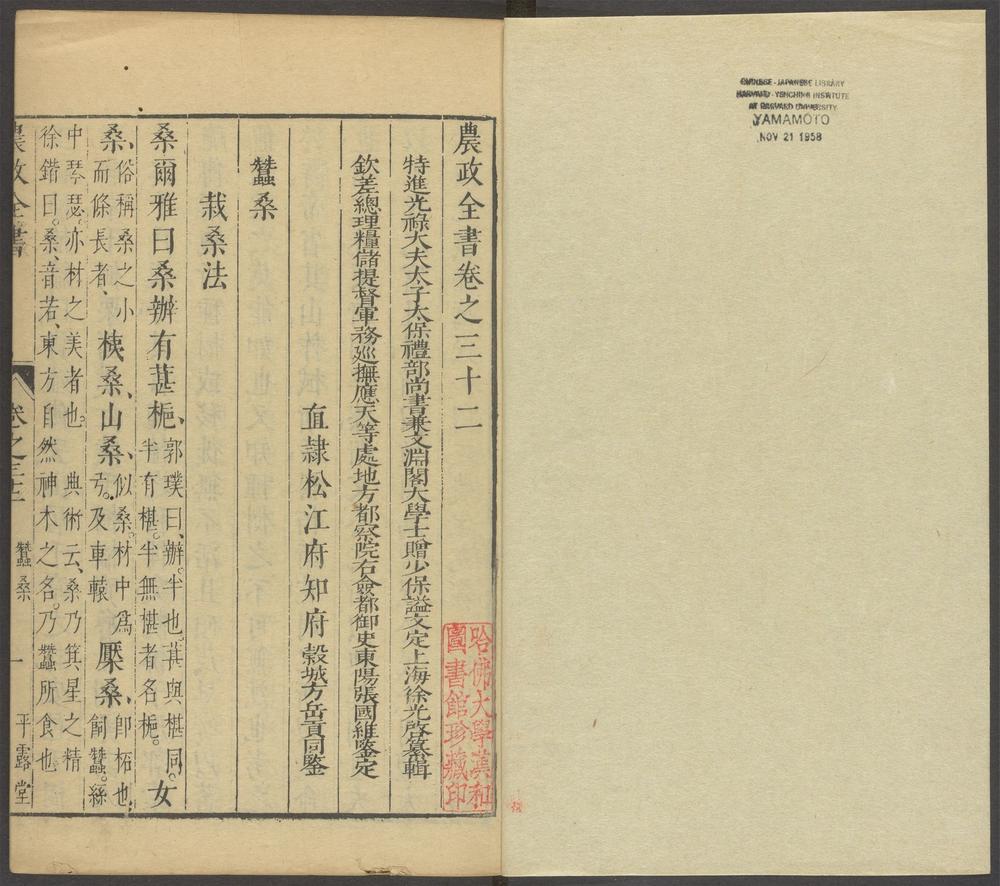 CHINESE-JAPANESE LIBRARY
HARVARD-YENCHING INSTITUTE
AT HARVARD UNIVERSITY
YAMAMOTO
NOV 21 1958
農政全書卷之三十二
特進光祿大夫太子太保禮部尚書兼文淵閣大學士贈少保謚文定上海徐光啓纂輯
欽差總理糧儲提督軍務廵撫應天等處地方都察院右僉都御史東陽張國維鑒定
直隷松江府知府穀城方岳貢同鑒
蠶桑
栽桑法
桑爾雅曰桑辦有葚梔、郭璞曰、辦。半也。葚與椹同。半有椹。半無椹者名梔。女
桑、俗稱桑之小而條長者、桋桑、山桑、似桑。材中爲弓。及車轅檿桑、卽柘也、飼蠶。絲
中琴瑟。亦材之美者也。典術云、桑乃箕星之精
徐鍇曰。桑、音若、東方自然神木之名。乃蠶所食也
農政全書
卷之三十二
蠶桑
一
平露堂
哈佛大學漢和
圖書館珍藏印